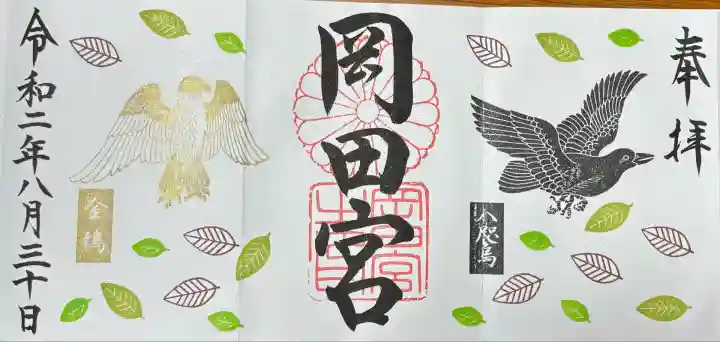 奉拝
八咫烏
岡田宮
岡田宮
金鵄
令和二年八月三十日